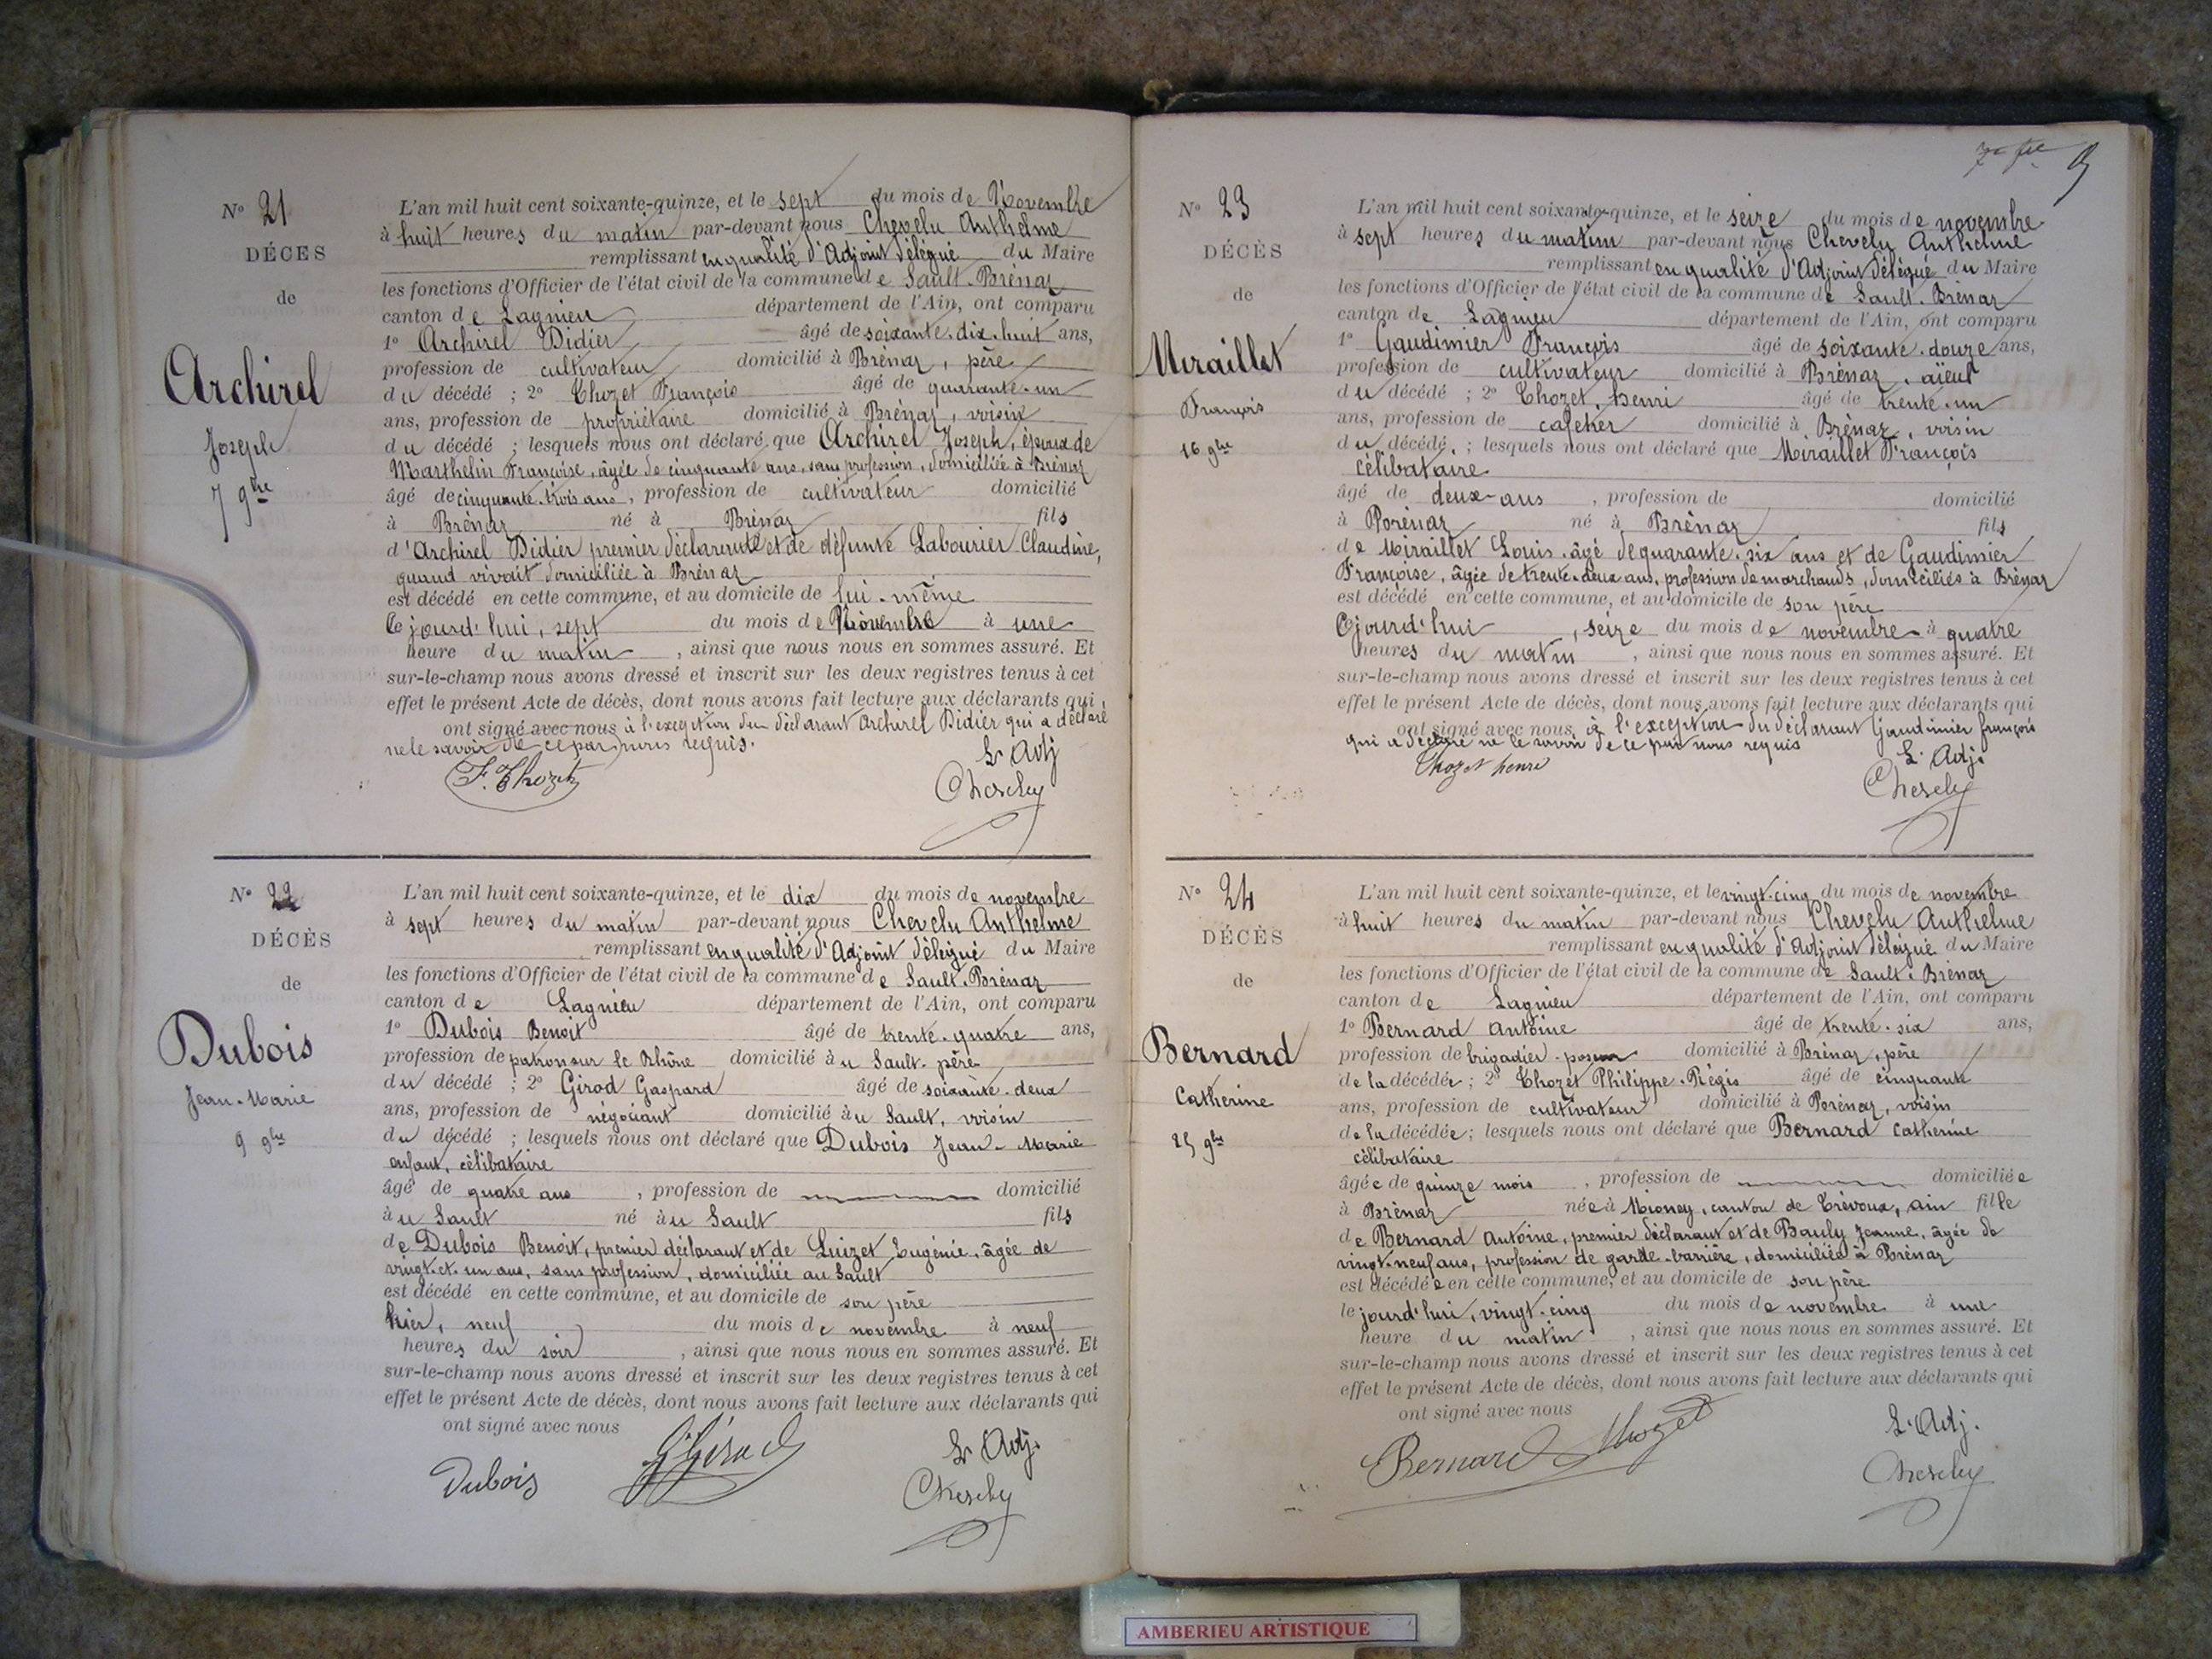 N° 21
DÉCES
de
Archirel
Joseph
7 9bre
L'an mil huit cent soixante-quinze, et le sept du mois de Novembre
à huit heures du matin par-devant nous Chevelu Anthelme
remplissant en qualité d'Adjoint délégué du Maire
les fonctions d'Officier de l'état civil de la commune de Sault-Brénaz
canton de Lagnieu département de l'Ain, ont comparu
1° Archirel Didier âgé de soixante-dix-huit ans,
profession de cultivateur domicilié à Brénaz, père
du décédé ; 2° Thozet François âgé de quarante-un
ans, profession de propriétaire domicilié à Brénaz, voisin
du décédé ; lesquels nous ont déclaré que Archirel Joseph, époux de
Marthelin Françoise, âgée de cinquante ans, sans profession, domiciliée à Brénaz
âgé de cinquante-trois ans, profession de cultivateur domicilié
à Brénaz né à Brénaz fils
d'Archirel Didier premier déclarent et de défunte Labourier Claudine,
quand vivait domiciliée à Brénaz
est décédé en cette commune, et au domicile de lui-même
Ce jourd'hui, sept du mois de Novembre à une
heure du matin, ainsi que nous nous en sommes assuré. Et
sur-le-champ nous avons dressé et inscrit sur les deux registres tenus à cet
effet le présent Acte de décès, dont nous avons fait lecture aux déclarants qui
ont signé avec nous à l'exception du déclarant Archirel Didier qui a déclaré
ne le savoir de ce par nous requis.
L' Adj
F. Thozet Chevelu
N° 22
DÉCÈS
de
Dubois
Jean-Marie
9 9bre
L'an mil huit cent soixante-quinze, et le dix du mois de novembre
à sept heures du matin par-devant nous Chevelu Anthelme
remplissant en qualité d'Adjoint délégué du Maire
les fonctions d'Officier de l'état civil de la commune de Sault-Brénaz
canton de Lagnieu département de l'Ain, ont comparu
1° Dubois Benoit âgé de trente-quatre ans,
profession de patron sur le Rhône domicilié àu Sault, père
du décédé ; 2° Girod Gaspard âgé de soixante-deux
ans, profession de négociant domicilié àu Sault, voisin
du décédé ; lesquels nous ont déclaré que Dubois Jean-Marie
enfant, célibataire
âgé de quatre ans, profession de domicilié
àu Sault né àu Sault fils
de Dubois Benoit, premier déclarant et de Luizet Eugénie, âgée de
vingt-et-un ans, sans profession, domiciliée au Sault
est décédé en cette commune, et au domicile de son père
hier, neuf du mois de novembre à neuf
heures du soir, ainsi que nous nous en sommes assuré. Et
sur-le-champ nous avons dressé et inscrit sur les deux registres tenus à cet
effet le présent Acte de décès, dont nous avons fait lecture aux déclarants qui
ont signé avec nous
L' Adj.
Dubois G Girod Chevelu
N° 23
DÉCÈS
de
Miraillet
François
16 9bre
L'an mil huit cent soixante-quinze, et le seize du mois de novembre
à sept heures du matin par-devant nous Chevelu Anthelme
remplissant en qualité d'Adjoint délégué du Maire
les fonctions d'Officier de l'état civil de la commune de Sault-Brénaz
canton de Lagnieu département de l'Ain, ont comparu
1° Gaudimier François âgé de soixante-douze ans,
profession de cultivateur domicilié à Brénaz, aïeul
du décédé ; 2° Thozet, henri âgé de trente-un
ans, profession de cafetier domicilié à Brénaz, voisin
du décédé, ; lesquels nous ont déclaré que Miraillet François
célibataire
âgé de deux-ans, profession de domicilié
à Brénaz né à Brénaz fils
de Miraillet Louis âgé de quarante-six ans et de Gaudimier
Françoise, âgée de trente-deux ans, profession de marchands, domiciliés à Brénaz
est décédé en cette commune, et au domicile de son père
Cejourd'hui, seize du mois de novembre à quatre
heures du matin, ainsi que nous nous en sommes assuré. Et
sur-le-champ nous avons dressé et inscrit sur les deux registres tenus à cet
effet le présent Acte de décès, dont nous avons fait lecture aux déclarants qui
ont signé avec nous, à l'exception du déclarant Gaudimier françois
qui a déclaré ne le savoir de ce par nous requis
L' Adj.
Thozet henri Chevelu
N° 24
DÉCÈS
de
Bernard
Catherine
25 9bre
L'an mil huit cent soixante-quinze, et le vingt-cinq du mois de novembre
à huit heures du matin par-devant nous Chevelu Anthelme
remplissant en qualité d'Adjoint délégué du Maire
les fonctions d'Officier de l'état civil de la commune de Sault-Brénaz
canton de Lagnieu département de l'Ain, ont comparu
1° Bernard Antoine âgé de trente-six ans,
profession de brigadier-poseur domicilié à Brénaz, père
de la décédée ; 2° Thozet Philippe-Régis âgé de cinquante
ans, profession de cultivateur domicilié à Brénaz, voisin
de la décédée ; lesquels nous ont déclaré que Bernard Catherine
célibataire
âgée de quinze mois, profession de domiciliée
à Brénaz née à Mioney, canton de Trévoux, ain fille
de Bernard Antoine, premier déclarant et de Bauly Jeanne, âgée de
vingt-neuf ans, profession de garde-barrière, domiciliée à Brénaz
est décédée en cette commune, et au domicile de son père
le jourd'hui, vingt-cinq du mois de novembre à une
heure du matin, ainsi que nous nous en sommes assuré. Et
sur-le-champ nous avons dressé et inscrit sur les deux registres tenus à cet
effet le présent Acte de décès, dont nous avons fait lecture aux déclarants qui
ont signé avec nous
L' Adj.
Bernard Thozet Chevelu
AMBERIEU ARTISTIQUE